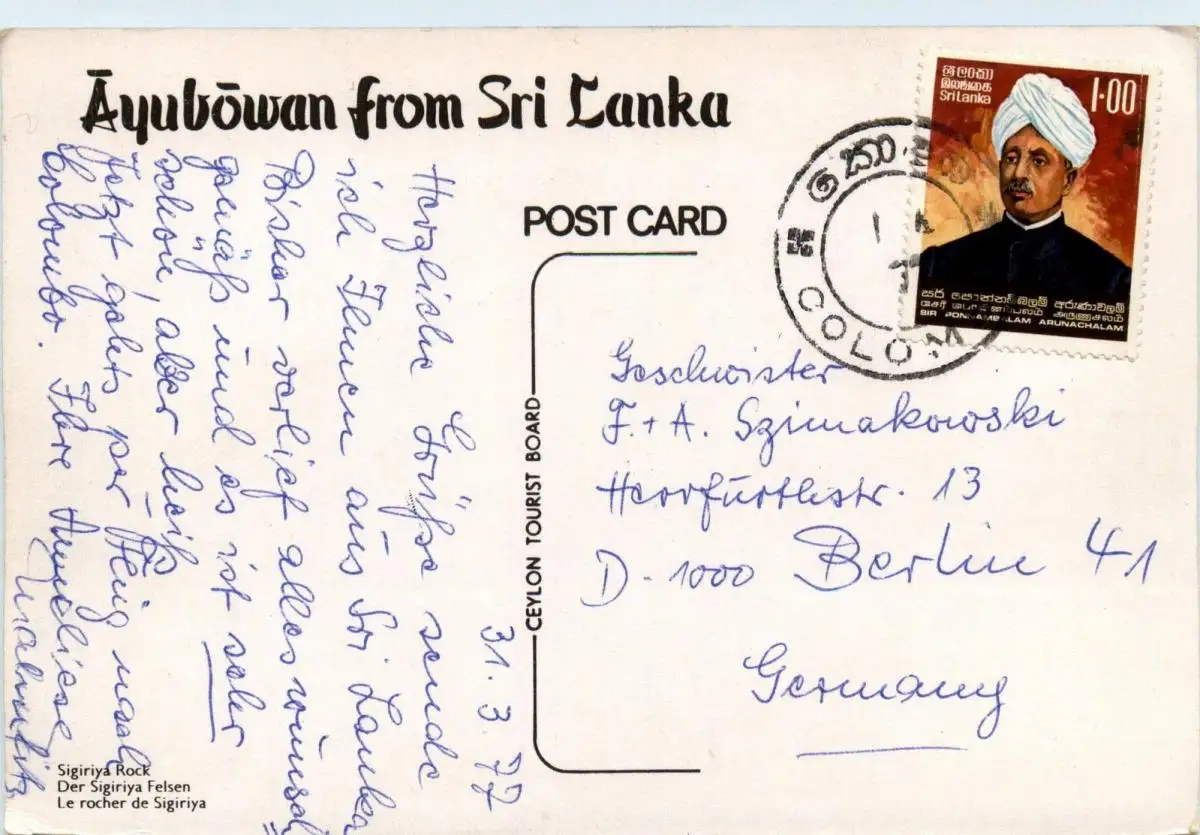 Āyubōwan from Sri Lanka
POST CARD
CEYLON TOURIST BOARD
ශ්‍රී ලංකා
இலங்கை
Sri Lanka
1·00
සර් පොන්නම්බලම් අරුණාචලම්
சேர் பொன்னம்பலம் அருணாசலம்
SIR PONNAMBALAM ARUNACHALAM
COLO
31.3.77
Herzliche Grüße sende
ich Ihnen aus Sri Lanka
Bisher verlief alles wunsch
gemäß und es ist sehr
schön, aber heiß
Jetzt gehts per Flug nach
Colombo. Ihre Anneliese
Geschwister
F. + A. Szimakowski
Herrfurthstr. 13
D - 1000 Berlin 41
Germany
Sigiriya Rock
Der Sigiriya Felsen
Le rocher de Sigiriya